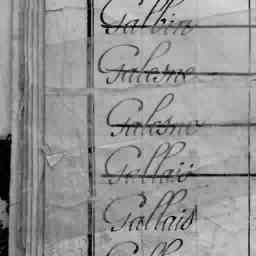 Galbin
Galesne
Galesne
Gallais
Gallais